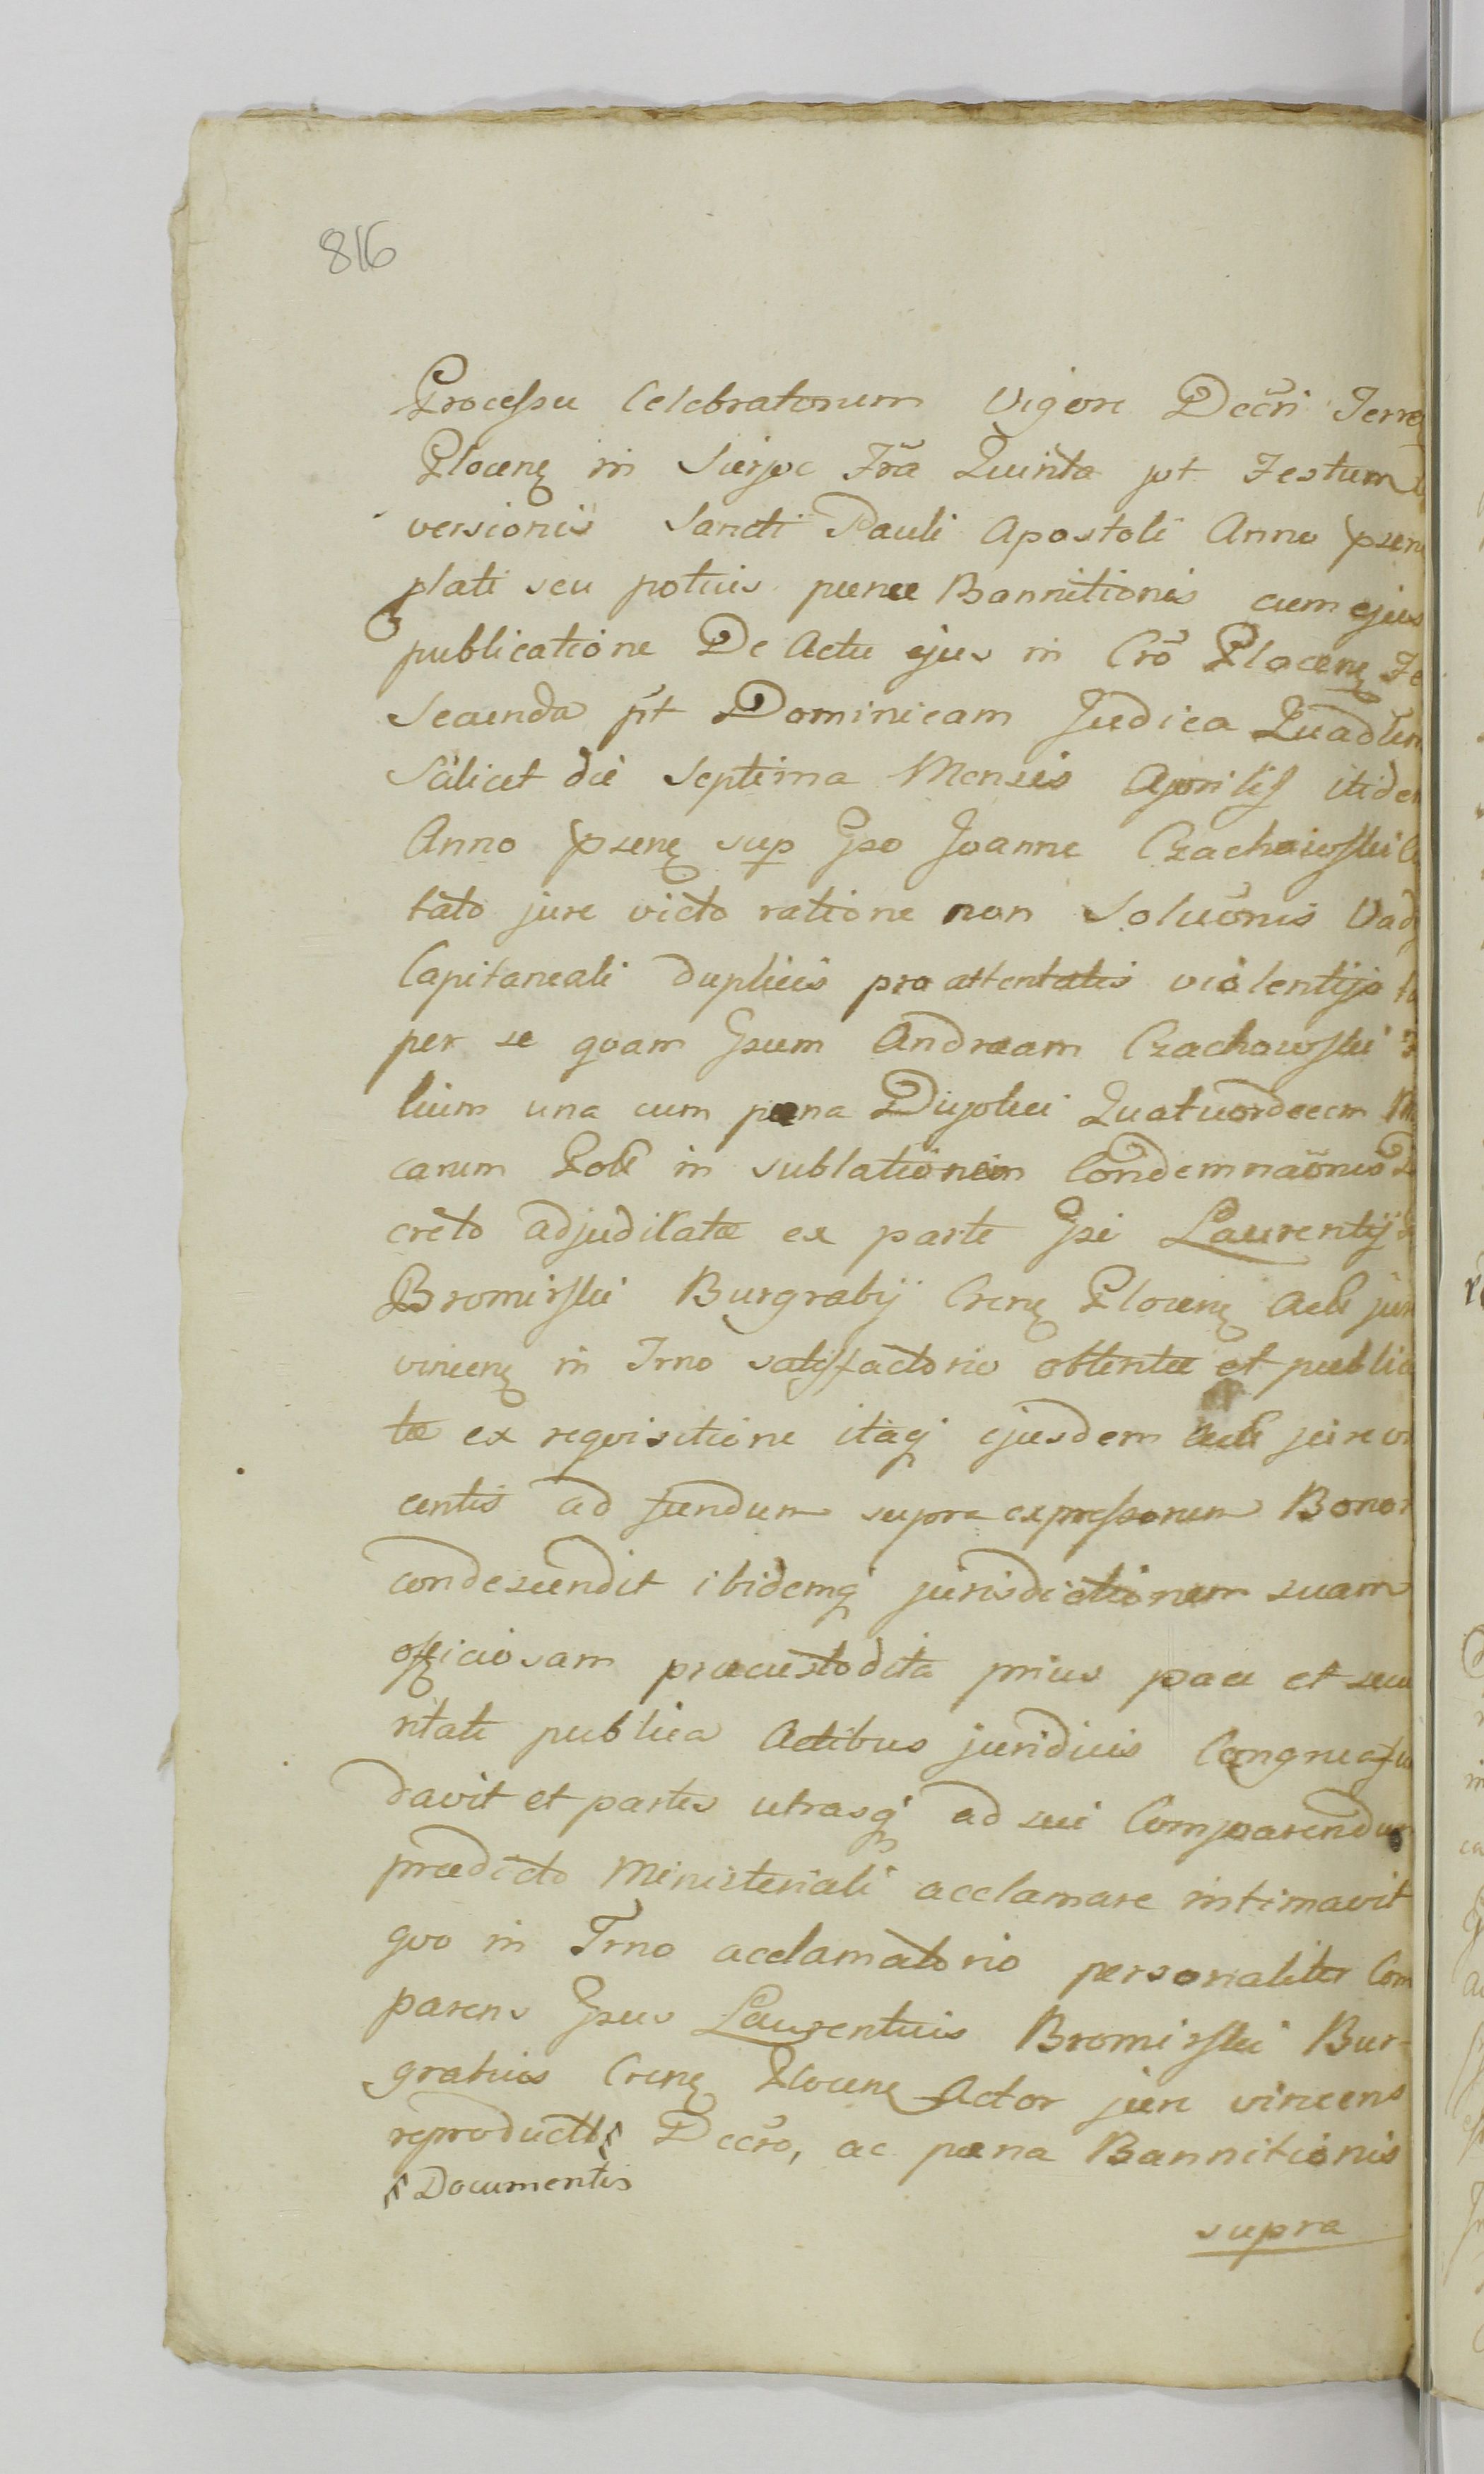 816
Processu Celebratorum Vigore Decri Terre
Plocenę in Sierpc Fra Quinta pt Festum
versionis Sancti Pauli Apostoli Anno psen
plati seu potius penæ Bannitionis cum ejus
publicatione De Actu ejus in Cro Plocenę Fe
Secunda pt Dominicam Judica Quadlem
Scilicet die Septima Mensis Aprilis itidem
Anno psenę sup Gso Joanne Czachowski
tato jure victo ratione non Soluonis Vad
Capitaneali duplicis pro attentatis violentijs ta
per se quam Gsum Andream Czachowski
lium una cum pœna Duplici Quatuordecem M
carum Pol in sublationem Condemnaonis D
creto adjudicatæ ex parte Gsi Laurentij
Bromirski Burgrabij Crenę Plocenę Act jure
vincenę in Trno satisfactorio obtentæ et publica
tæ ex requisitione itaq ejusdem Act jure vi
centis ad fundum supra expressorum Bonor
condescendit ibidemq jurisdictionem suam
officiosam præcustodita prius pace et secu
ritate publica Actibus juridicis Congrua fu
davit et partes utrasq ad sui Comparendum
prædicto Ministeriali acclamare intimavit
quo in Trno acclamatorio personaliter Com
parens Gsus Laurentius Bromirski Bur-
grabius Crenę Plocenę Actor jure vincens
reproductis Decro, ac pœna Bannitionis
Documentis
supra